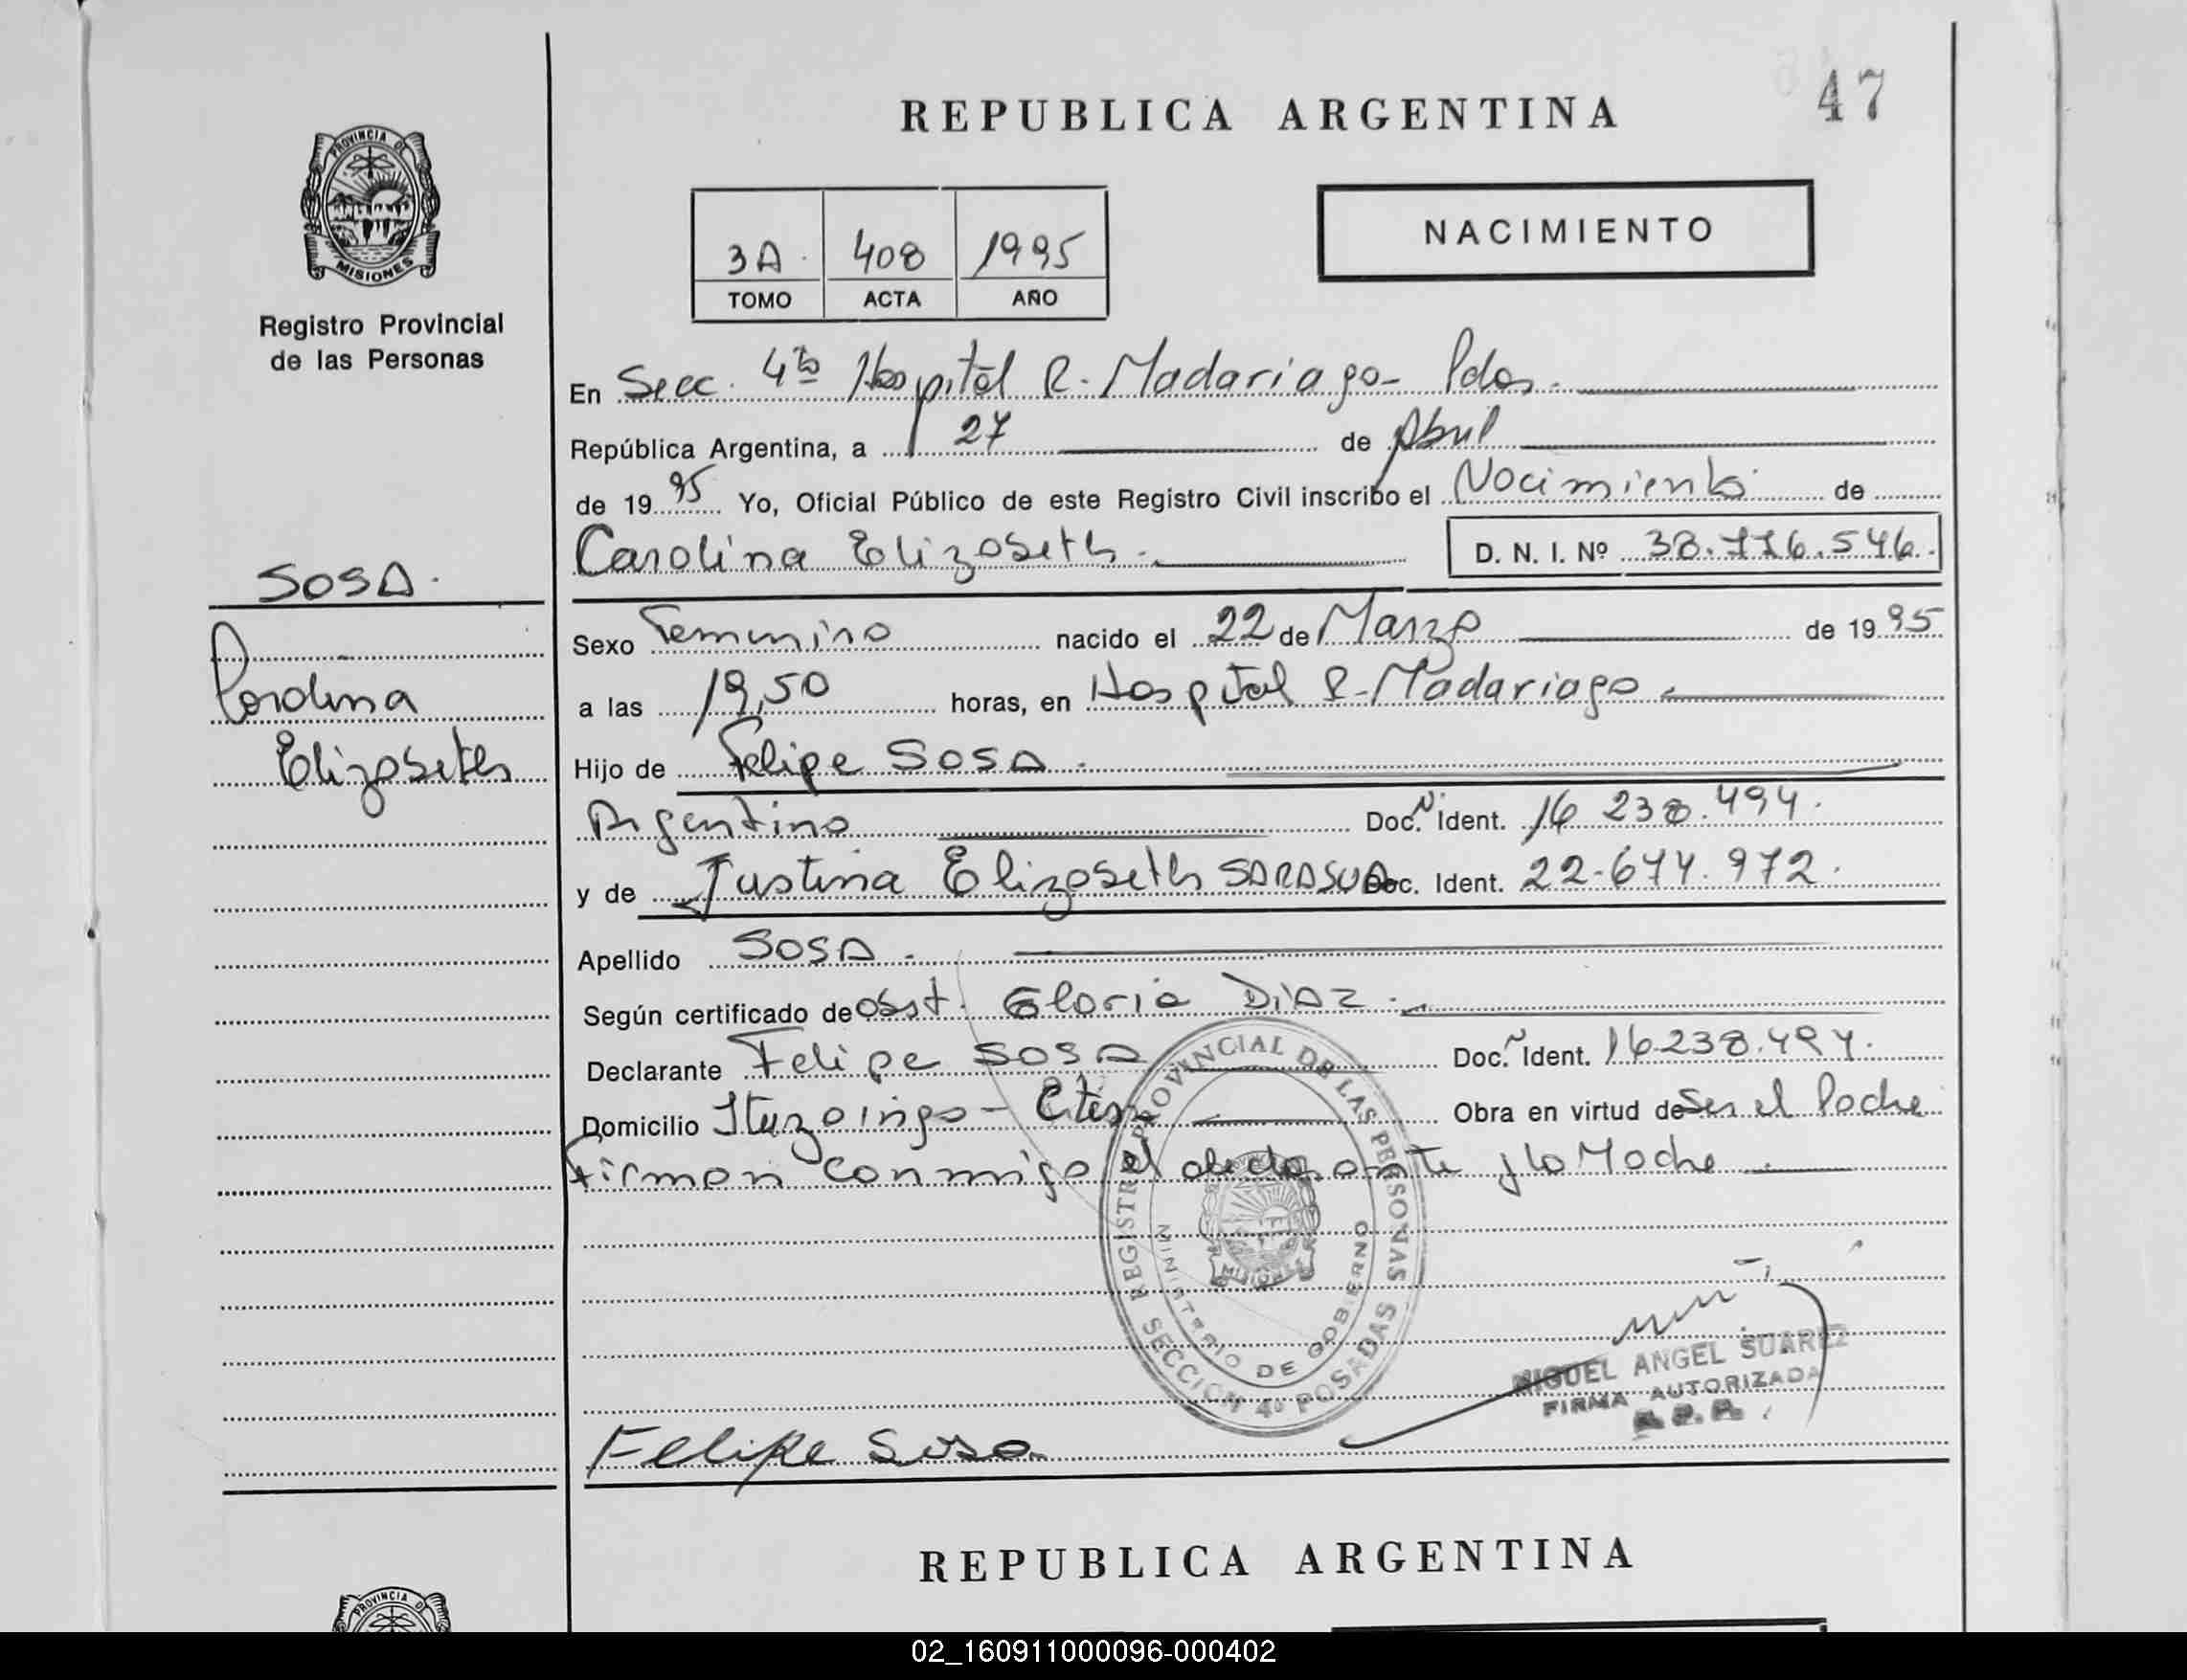 47
REPUBLICA ARGENTINA
PROVINCIA DE
MISIONES
Registro Provincial
de las Personas
3A 408 1995
TOMO ACTA AÑO
NACIMIENTO
En Secc. 4ta Hospital R. Madariaga - Pdas.
República Argentina, a 27 de Abril
de 1995 Yo, Oficial Público de este Registro Civil inscribo el Nacimiento de
Carolina Elizabeth. D. N. I. Nº 38.776.546.
SOSA.
Carolina
Elizabeth
Sexo Femenino nacido el 22 de Marzo de 1995
a las 19,50 horas, en Hospital R. Madariaga.
Hijo de Felipe SOSA.
Argentino Doc. N Ident. 16 238.494.
y de Justina Elizabeth SARASUA Doc. Ident. 22.674.972.
Apellido SOSA.
Según certificado de Obst. Gloria DIAZ.
Declarante Felipe SOSA Doc. N Ident. 16.238.494.
Domicilio Ituzaingo - Ctes. Obra en virtud de Ser el Padre
Firman conmigo el declarante y la Madre
REGISTRO PROVINCIAL DE LAS PERSONAS
MINISTERIO DE GOBIERNO
MISIONES
SECCION 4ª POSADAS
MIGUEL ANGEL SUAREZ
FIRMA AUTORIZADA
R. P. P.
Felipe Sosa
REPUBLICA ARGENTINA
PROVINCIA DE
02_160911000096-000402